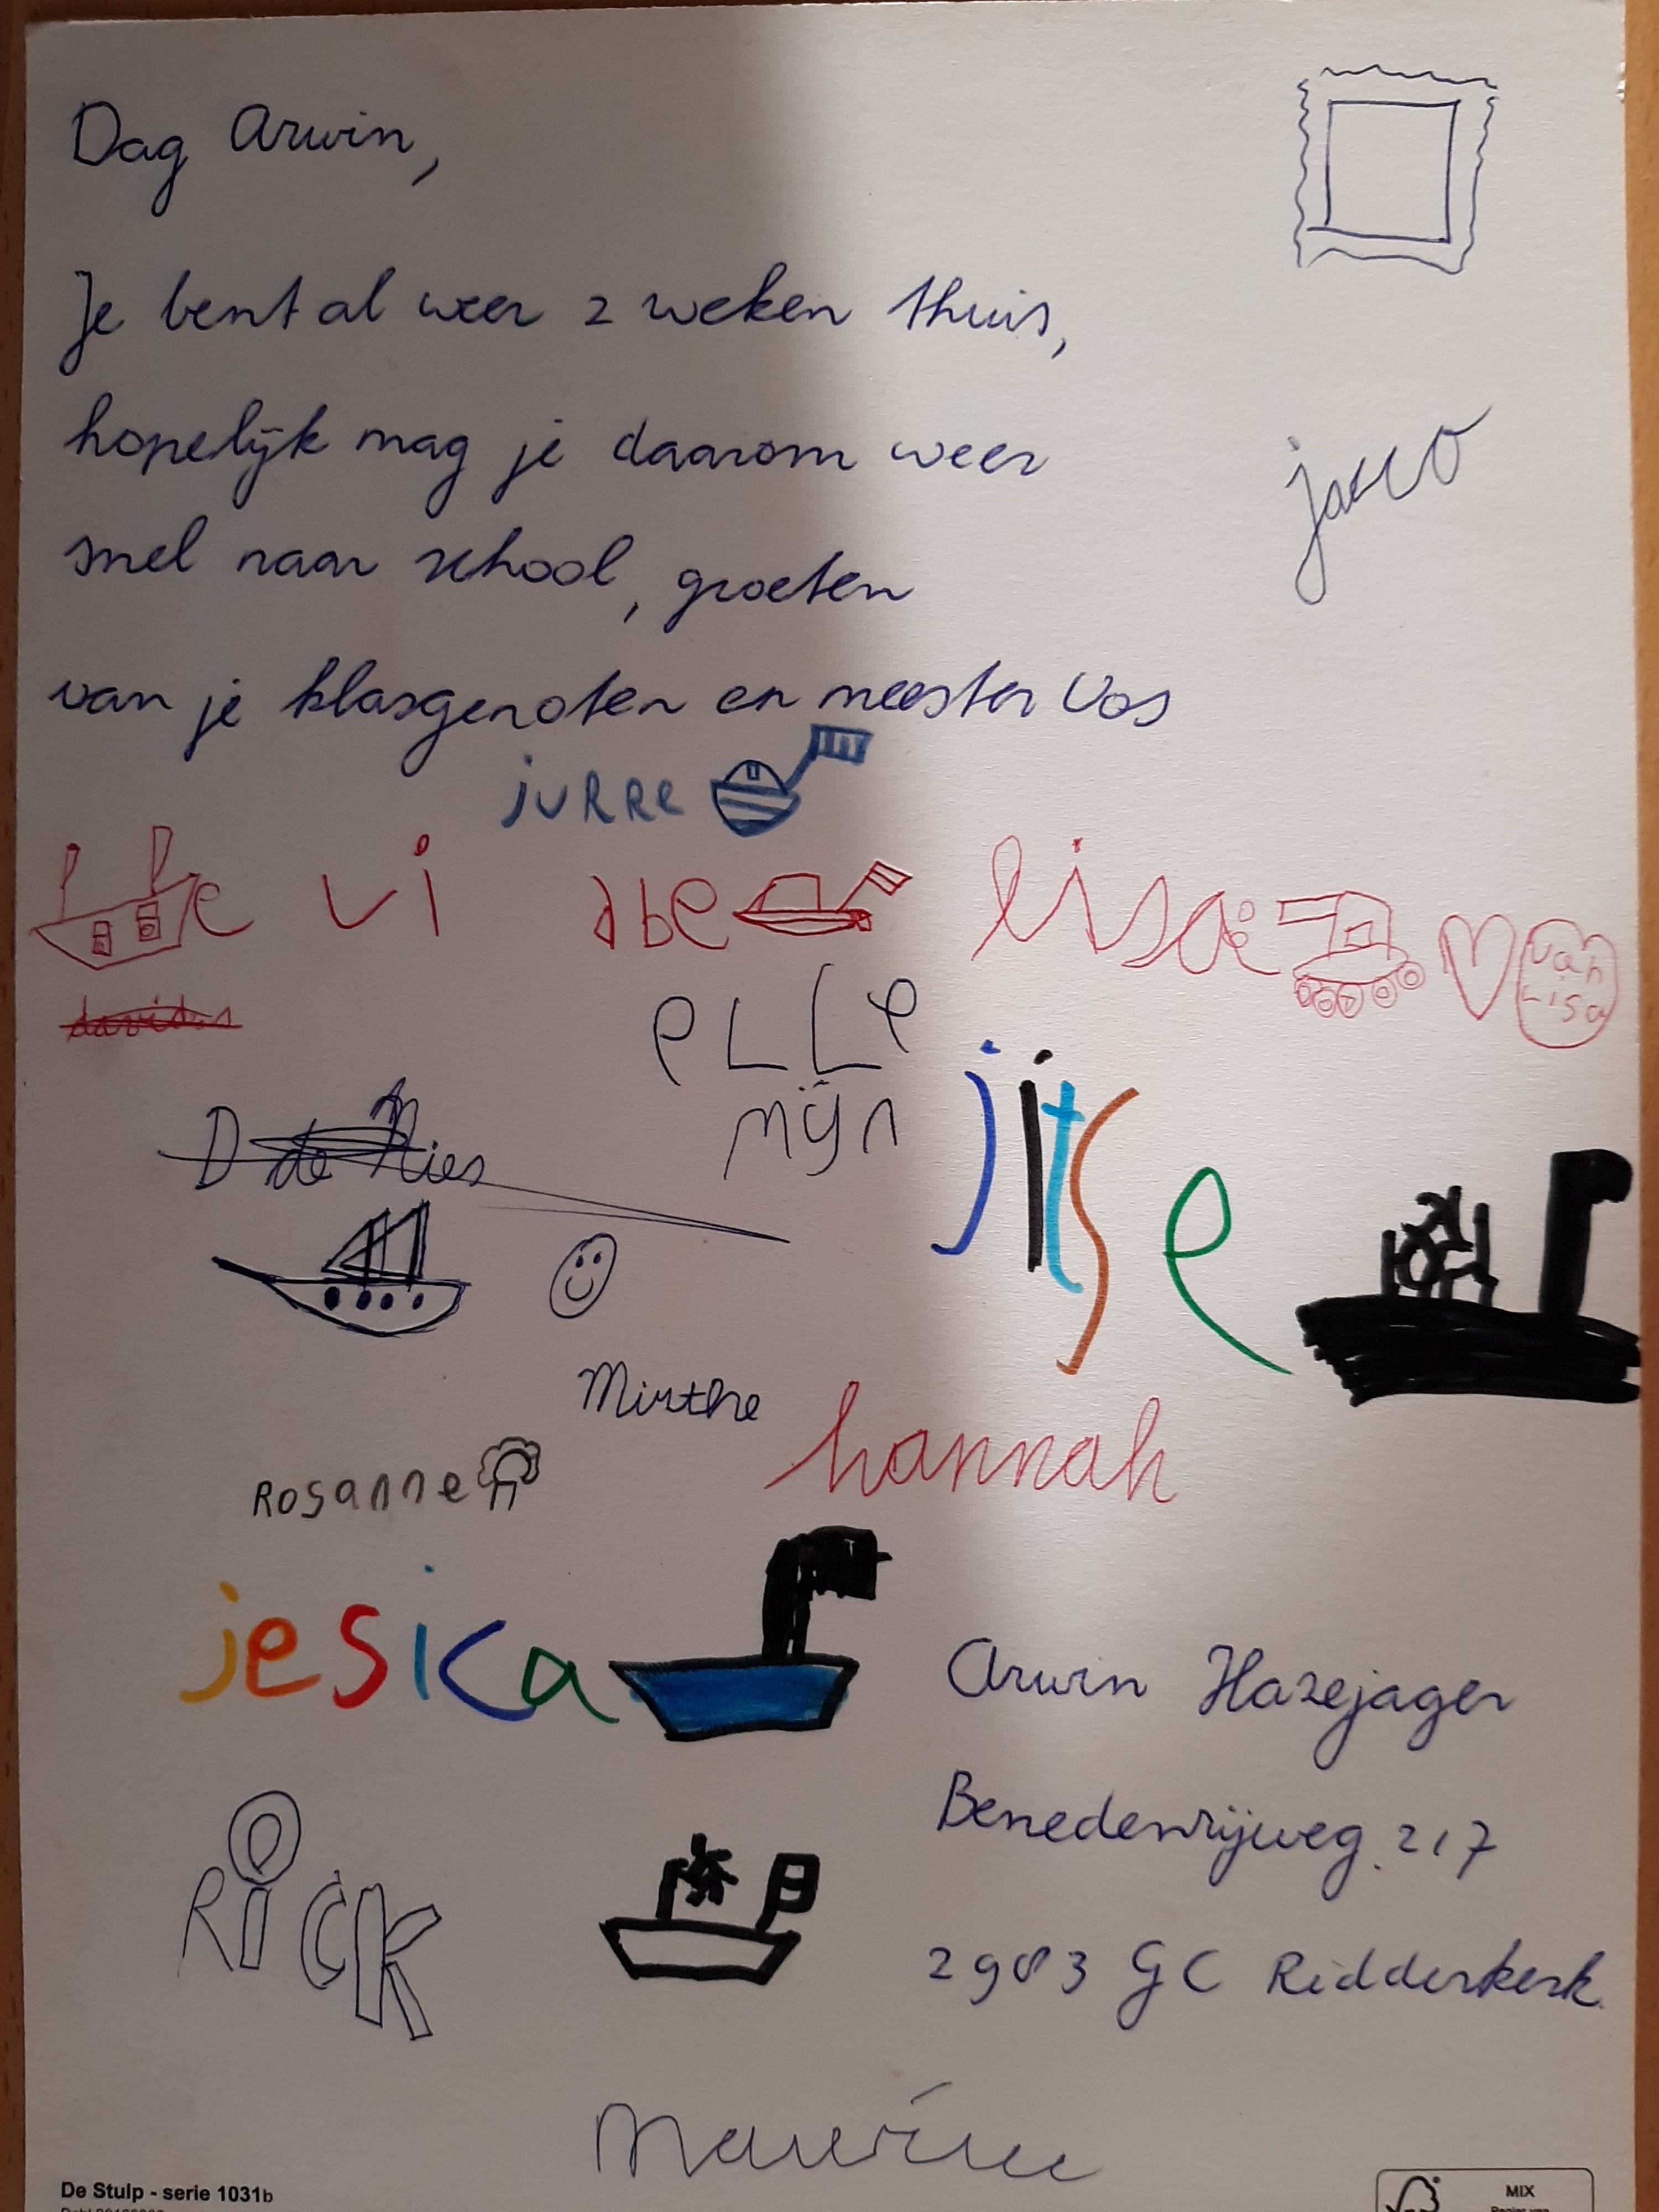 Dag Arwin,
Je bent al weer 2 weken thuis,
hopelijk mag je daarom weer
snel naar school, groeten
van je klasgenoten en meester Vos
jacco
juRRe
levi
abe
lisa
van Lisa
eLLe
mijn
D de Nies
jitse
Mirthe
hannah
Rosanne
jesica
Arwin Hazejager
Benedenrijweg 217
2983 GC Ridderkerk
RicK
De Stulp - serie 1031b
MIX